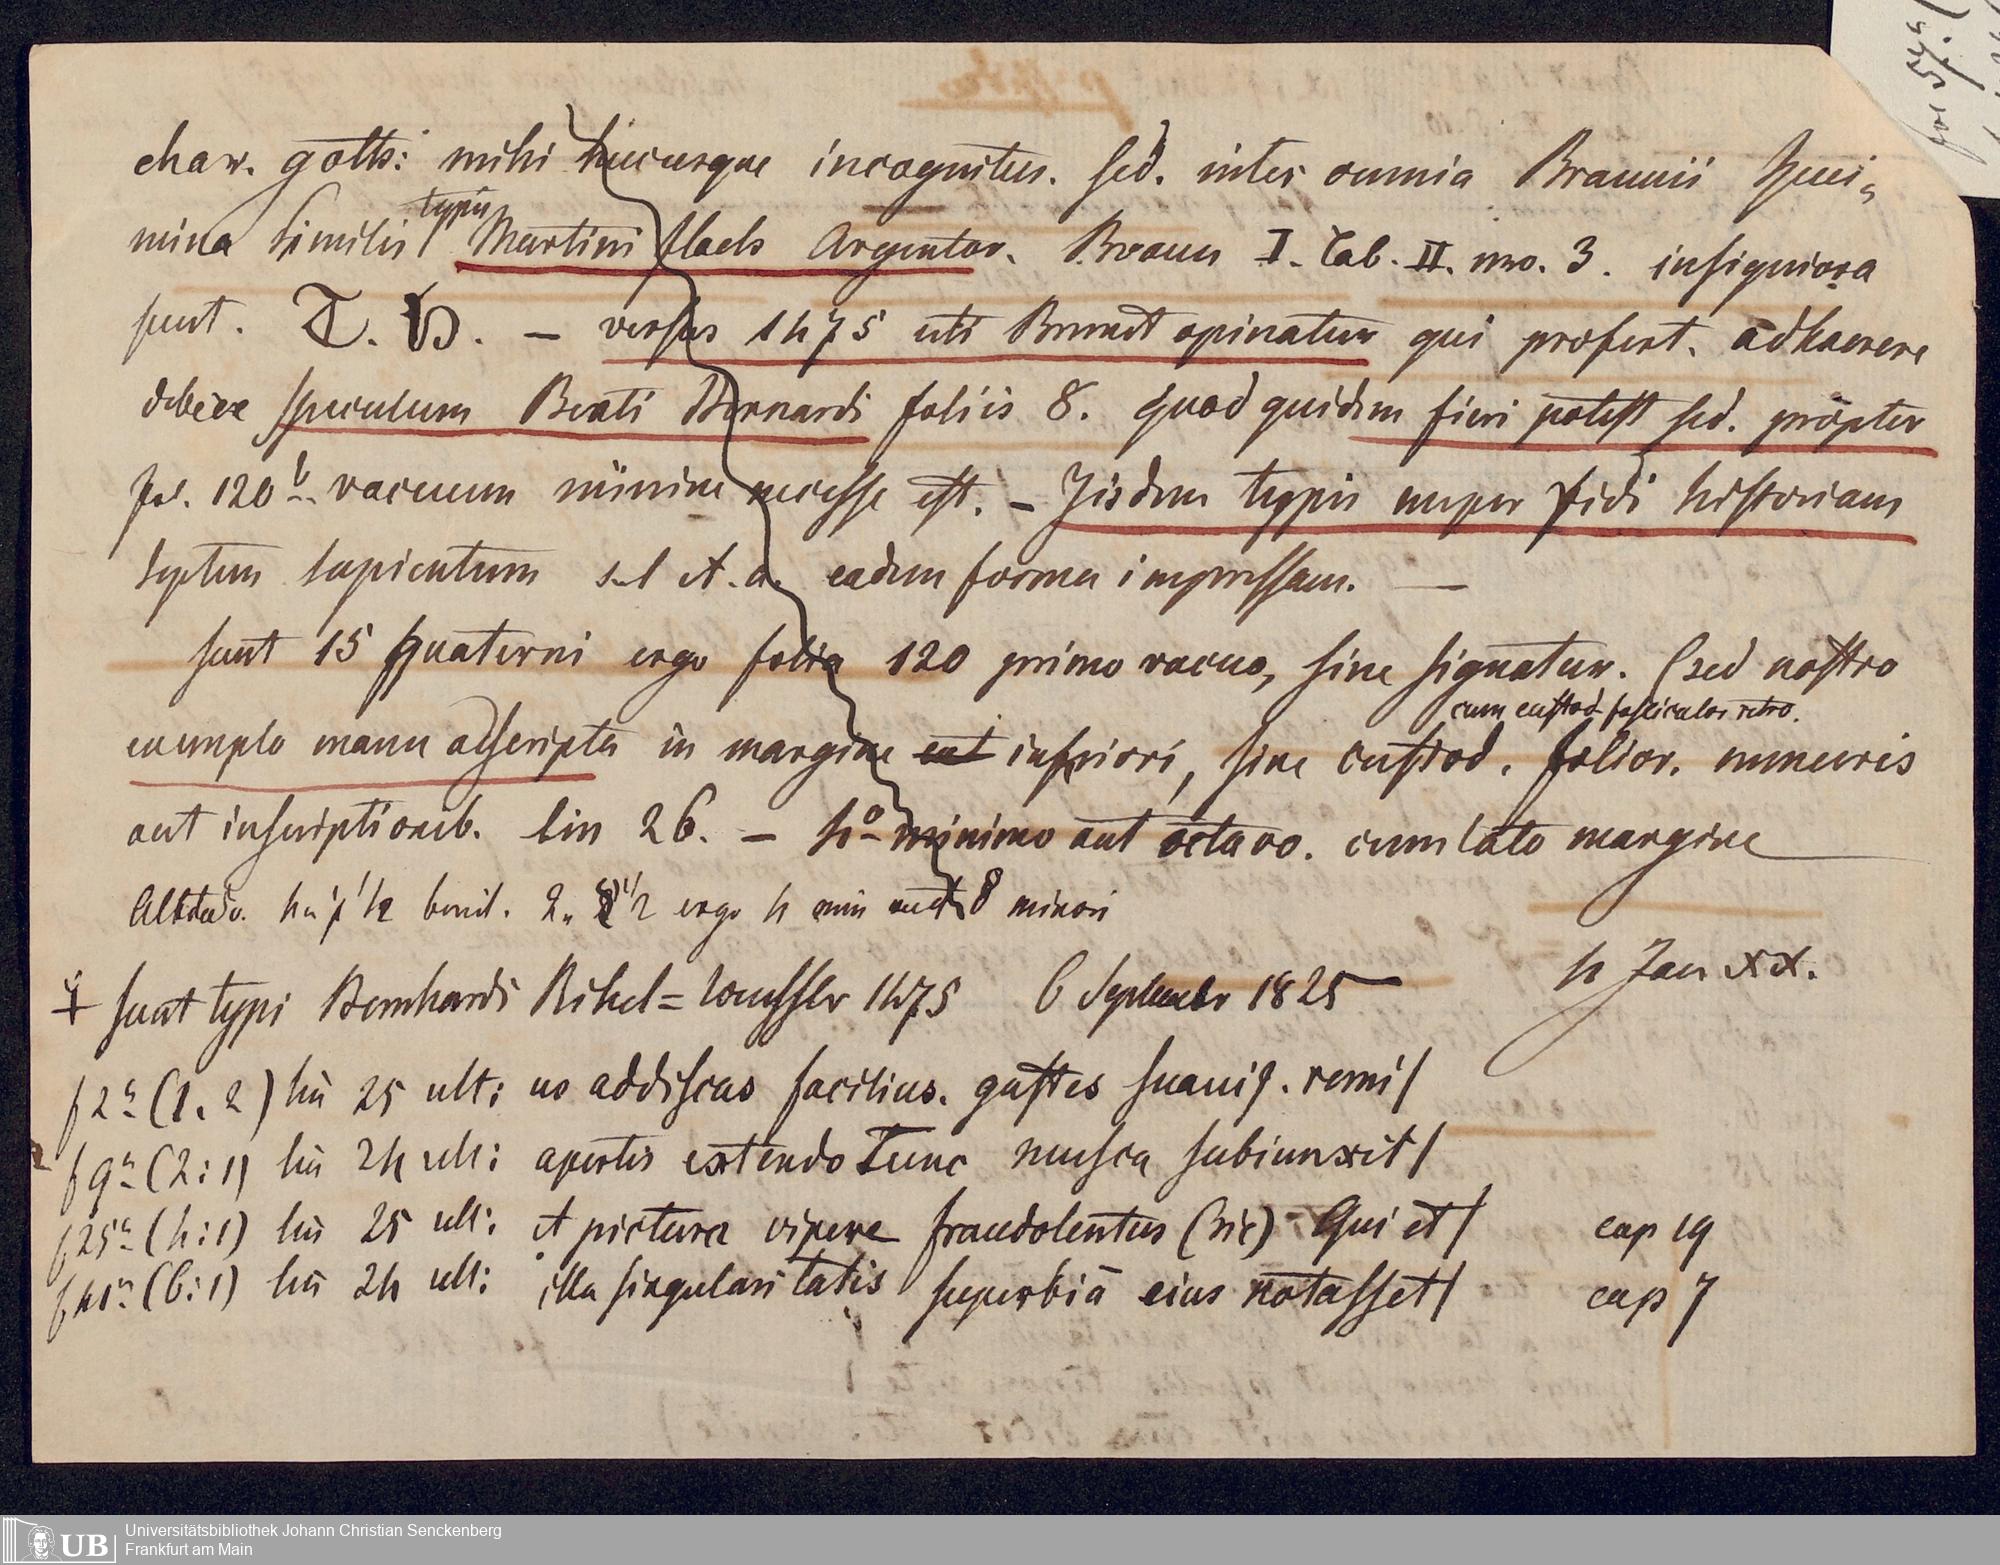 char. goth: mihi hucusque incognitus. sed. inter omnia Braunii Speci=
mina similis typis Martini flach Argentor. Braun I. Tab. II. nro. 3. insigniora
sunt. T. H. – versus 1475 uti Brunet opinatur qui profert. adhaerere
debere speculum Beati Bernardi foliis 8. quod quidem fieri potest sed. propter
fol. 120b vacuum minime necesse est. – Iisdem typis nuper vidi historiam
septem sapientum s. l et. a. eadem forma impressam. —
sunt 15 quaterni ergo folia 120 primo vacuo, sine signatur. (sed nostro
cum custod fasciculor retro.
exemplo manu adscripta in margine inferiori, sine custod. folior. numeris
aut inscriptionib. lin 26. – 4o minimo aut octavo. cum lato margine
ergo 4 min aut 8 minori
4 Jan XX.
sunt typi Bernhardi Rihel = 1475 6 September 1825
f 2a (1. 2) lin 25 ult: uo addiscas facilius. gustes suaui9. remi/
f 9a (2:1) lin 24 ult: apertis extendo Tunc musca subiunxit/
f 25a (4:1) lin 25 ult: et pictura vipere fraudolentus (sic) – Qui et/ cap 19
f 41a (6:1) lin 24 ult: illa singularitatis superbiā eius notasset/ cap 7
Universitätsbibliothek Johann Christian Senckenberg
Frankfurt am Main
UB